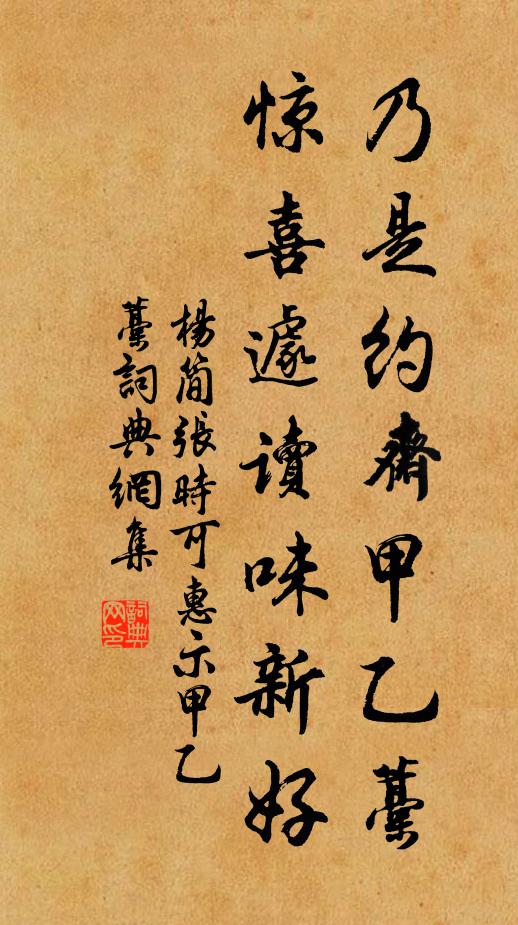 乃是约齋甲乙藁
惊喜遽读味新好
楊简張時可惠示甲乙
藁詞典網集
詞典网印